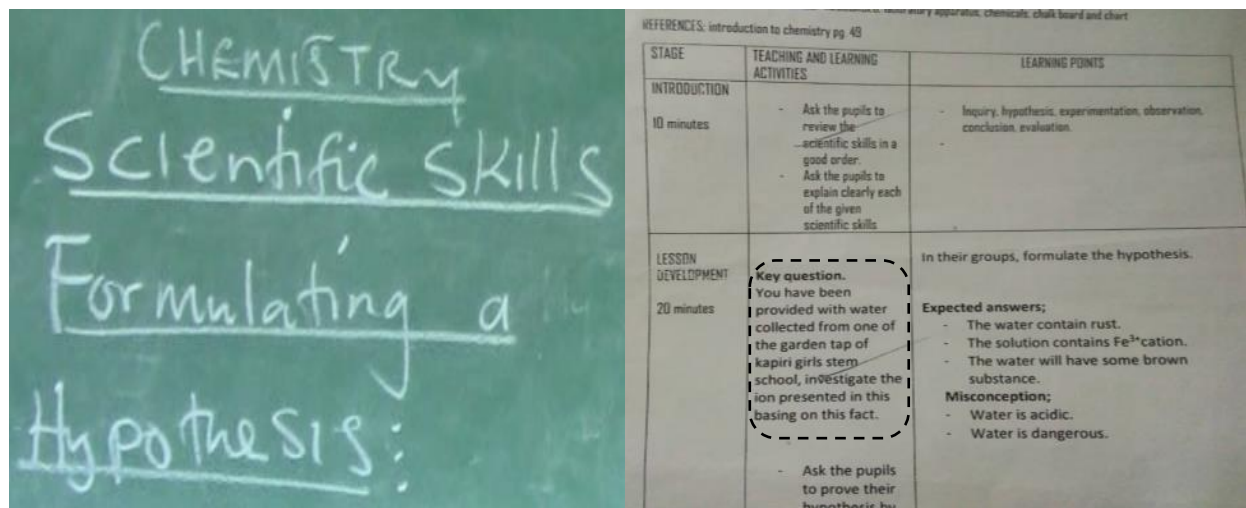 CHEMISTRY
Scientific Skills
Formulating a
Hypothesis:
apparatus, chemicals, chalk board and chart
REFERENCES: introduction to chemistry pg. 49
STAGE
TEACHING AND LEARNING
ACTIVITIES
LEARNING POINTS
INTRODUCTION
10 minutes
- Ask the pupils to
review the
scientific skills in a
good order.
- Ask the pupils to
explain clearly each
of the given
scientific skills
- Inquiry, hypothesis, experimentation, observation,
conclusion, evaluation.
-
LESSON
DEVELOPMENT
20 minutes
Key question.
You have been
provided with water
collected from one of
the garden tap of
kapiri girls stem
school, investigate the
ion presented in this
basing on this fact.
- Ask the pupils
to prove their
hypothesis by
In their groups, formulate the hypothesis.
Expected answers;
- The water contain rust.
- The solution contains Fe³⁺cation.
- The water will have some brown
substance.
Misconception;
- Water is acidic.
- Water is dangerous.